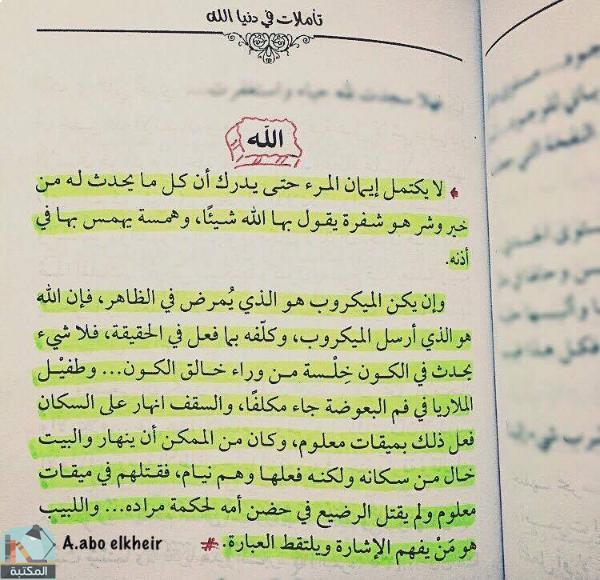 تأملات في دنيا الله
فهلا سجدت لله حياء واستغفرت...
الله
لا يكتمل إيمان المرء حتى يدرك أن كل ما يحدث له من
خير وشر هو شفرة يقول بها الله شيئًا، وهمسة يهمس بها في
أذنه.
وإن يكن الميكروب هو الذي يُمرض في الظاهر، فإن الله
هو الذي أرسل الميكروب، وكلّفه بما فعل في الحقيقة، فلا شيء
يحدث في الكون خِلْسة من وراء خالق الكون... وطفيْل
الملاريا في فم البعوضة جاء مكلفًا، والسقف انهار على السكان
فعل ذلك بميقات معلوم، وكان من الممكن أن ينهار والبيت
خال من سكانه ولكنه فعلها وهم نيام، فقتلهم في ميقات
معلوم ولم يقتل الرضيع في حضن أمه لحكمة مراده... واللبيب
هو مَنْ يفهم الإشارة ويلتقط العبارة. #
A.abo elkheir
المكتبة